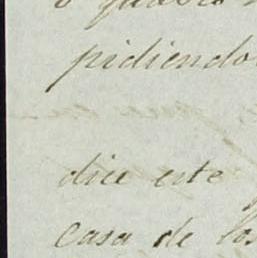 pidiendo
dice este
casa de los